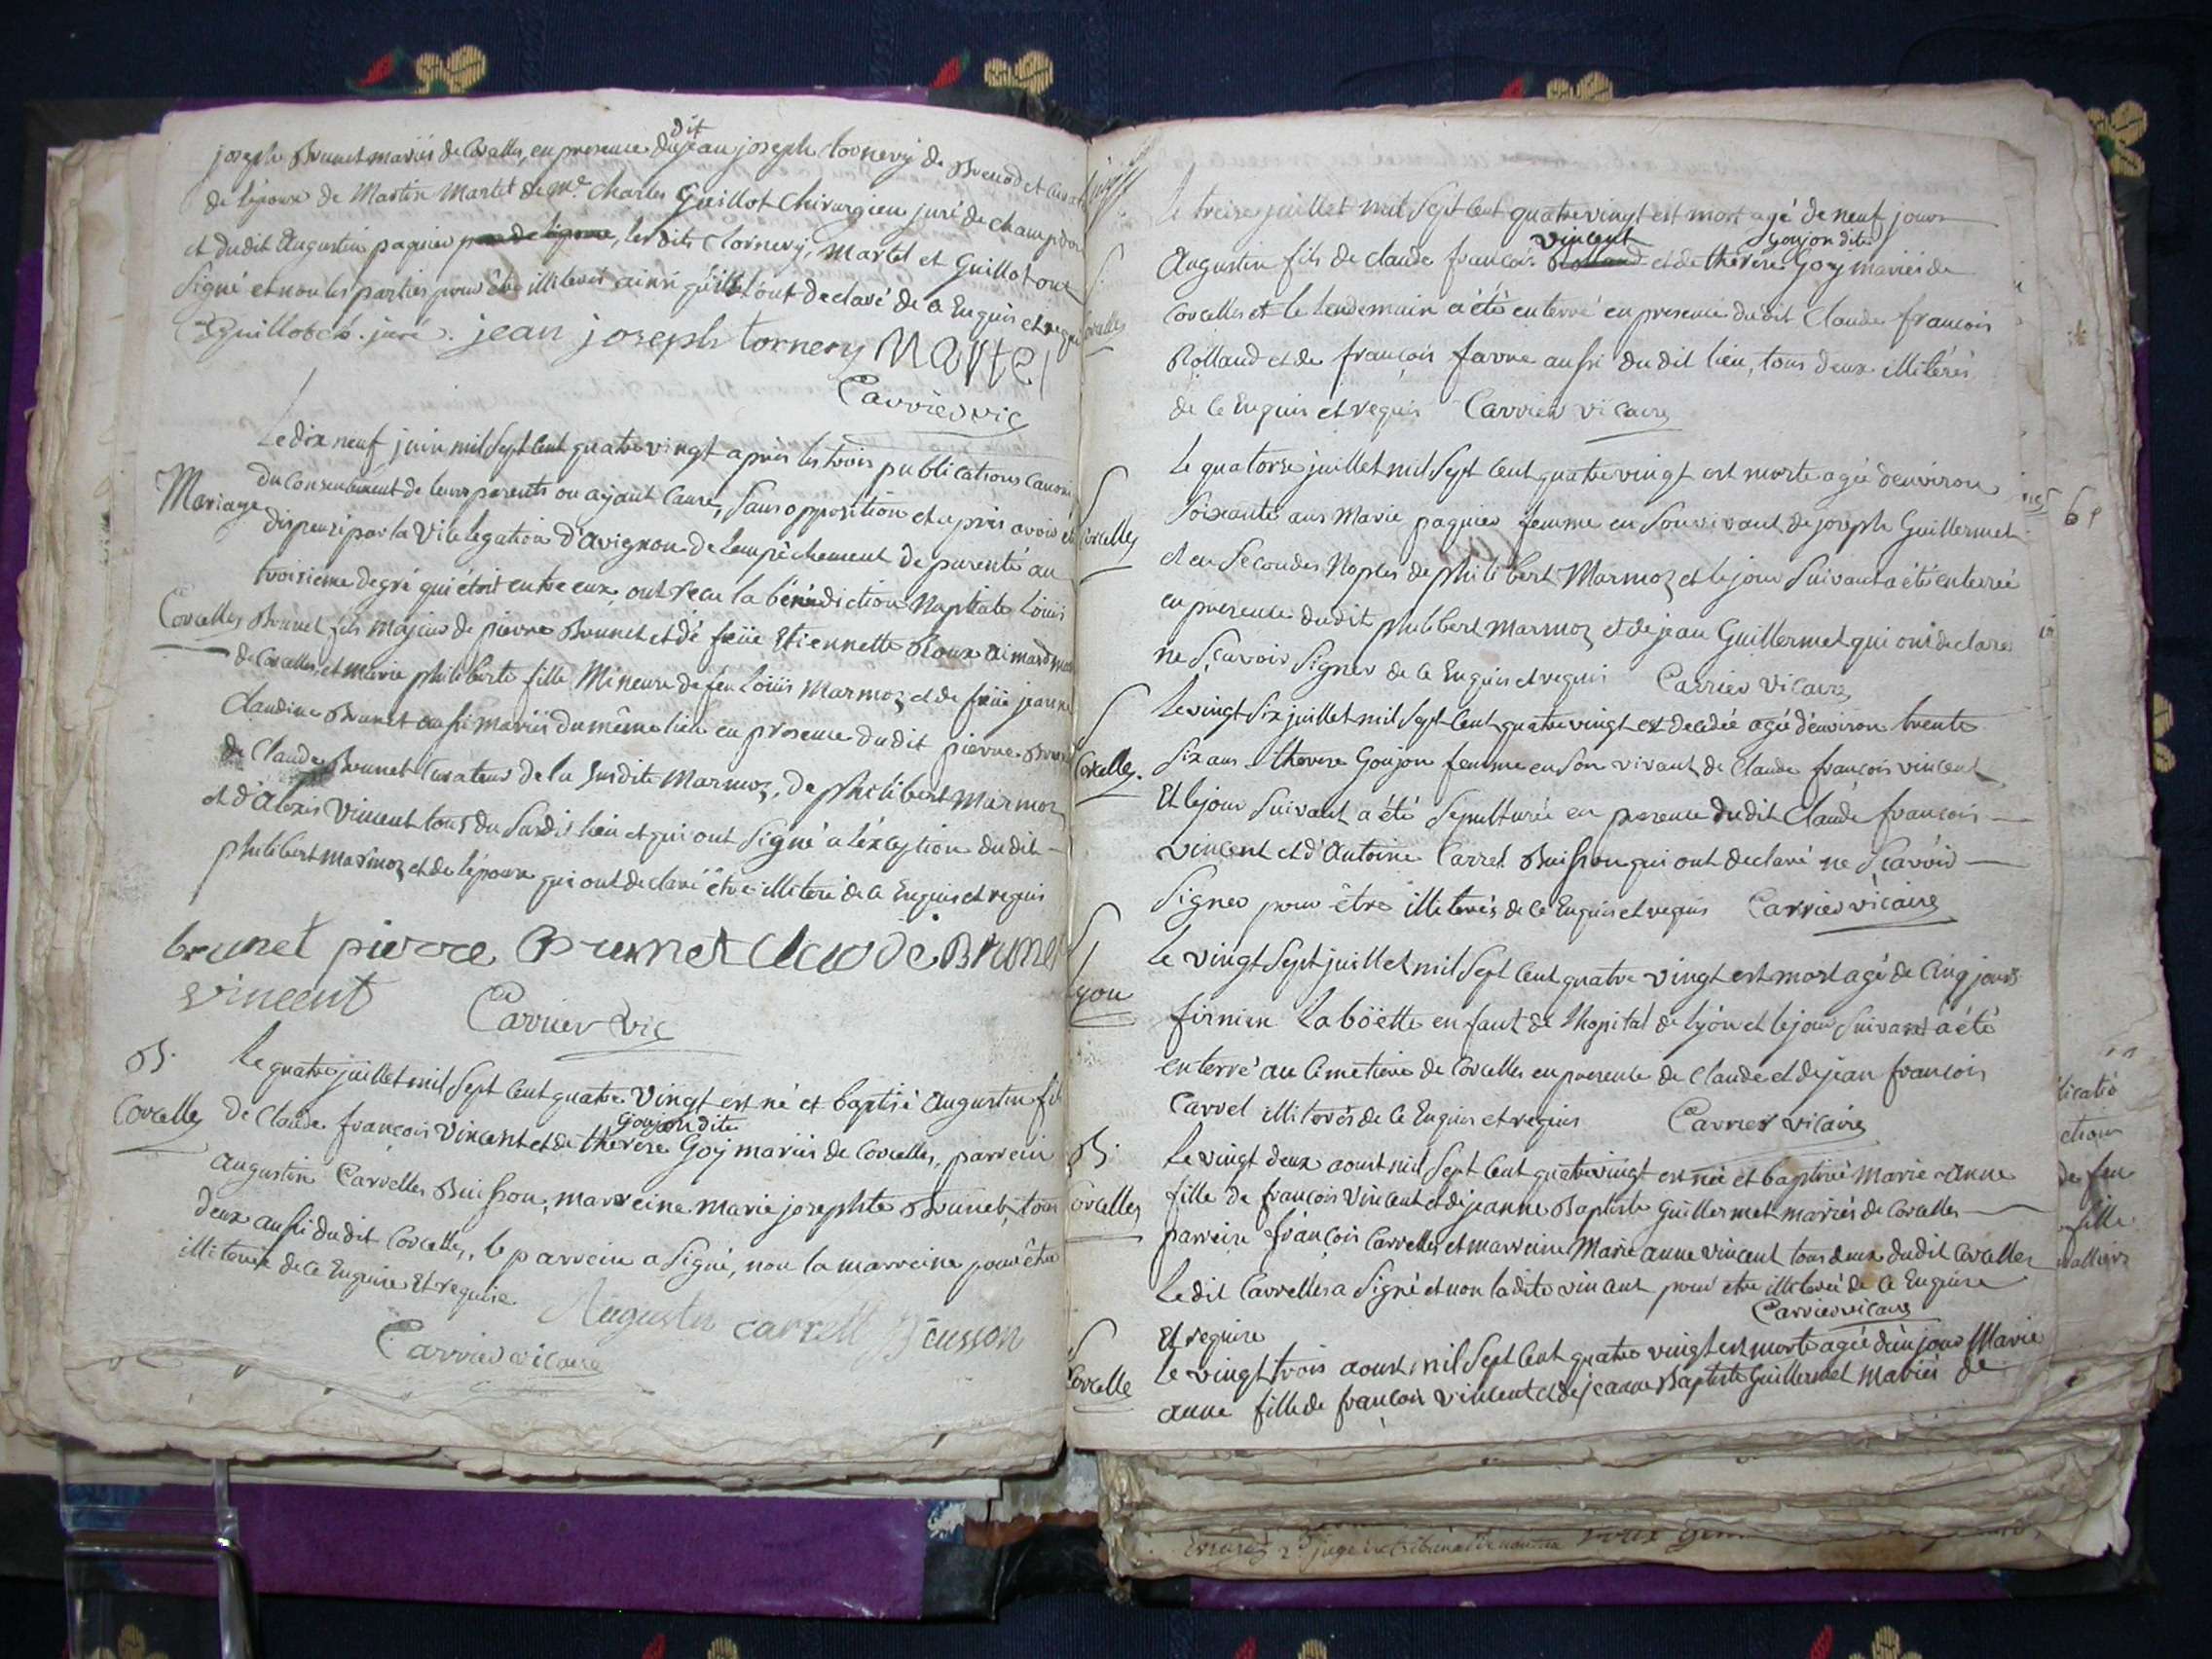 joseph Brunet mariés de Corcelles, en presence dudit jean joseph tornery de Brenod et
de l'epouse de Martin Martel de me. Charles Guillot Chirurgien juré de champdor
et dudit Augustin paquier, lesdits tornery, Martel et Guillot ont
Signé et non les parties pour être illiterés ainsi qu'ils l'ont declaré de ce Enquis et requis
Guillot juré. jean joseph tornery Martel
Carrier vic
Le dix neuf juin mil Sept Cent quatre vingt après les trois publications Canoni
Mariage
du Consentement de leurs parents ou ayant Cause, Sans opposition et après avoir été
dispensé par la Vice legation d'avignon de l'empêchement de parenté au
troisieme degré qui étoit entre eux, ont recu la bénédiction Nuptiale Louis
Corcelles
Brunet fils Majeur de pierre Brunet et de feüe Etiennette Roux aimard mariés
de Corcelles, et marie philiberte fille Mineure de feu Loüis Marmoz et de feüe jeanne
Claudine Brunet aussi mariés du même lieu en presence dudit pierre Brunet
de Claude Brunet Curateur de la susdite Marmoz, de philibert Marmoz
et d'Alexis Vincent tous du Susdit lieu et qui ont Signé a l'exception dudit
philibert marmoz et de l'epouse qui ont declaré être illiteré de ce Enquis et requis
brunet pierre Brunet Claude Brunet
vincent Carrier Vic
B.
Corcelles
Le quatre juillet mil Sept Cent quatre Vingt est né et baptisé Augustin fils
Goujon dite
de Claude françois Vincent et de therese Goy mariés de Corcelles, parrein
Augustin Carrelles Buisson, marreine marie josephte Brunet, tous
deux aussi dudit Corcelles, le parrein a Signé, non la marreine pour être
illiterée de ce Enquise Et requise
Augustin carrell Buisson
Carrier vicaire
S.
Corcelles
Le treize juillet mil Sept Cent quatre vingt est mort agé de neuf jours
vincent Goujon dite
Augustin fils de claude françois Rolland et de therese Goy mariés de
Corcelles et le lendemain a été enterré en presence dudit Claude françois
Rolland et de françois favre aussi du dit lieu, tous deux illiterés
de ce Enquis et requis Carrier vicaire
S
Corcelles
Le quatorze juillet mil Sept Cent quatre vingt est morte agée d'environ
Soixante ans Marie paquier femme en Son vivant de joseph Guillermet
et en Secondes Noces de philibert Marmoz et le jour Suivant a été enterrée
en presence dudit philibert Marmoz et de jean Guillermet qui ont declaré
ne Sçavoir Signer de ce Enquis et requis Carrier Vicaire
S
Corcelles.
Le vingt Six juillet mil Sept Cent quatre vingt est decedée agée d'environ trente
Six ans therese Goujon femme en Son vivant de Claude françois vincent
Et le jour Suivant a été Sepulturée en presence dudit Claude françois
vincent et d'Antoine Carrel Buisson qui ont declaré ne Sçavoir
Signer pour être illiterés de ce Enquis et requis Carrier vicaire
S
Lyon
Le vingt Sept juillet mil Sept Cent quatre vingt est mort agé de Cinq jours
firmin Laböette enfant de l'hopital de Lyon et le jour Suivant a été
enterré au Cimetiere de Corcelles en presence de Claude et de jean françois
Carrel illiterés de ce Enquis et requis Carrier vicaire
B.
Corcelles
Le vingt deux aoust mil Sept Cent quatre vingt est née et baptisée Marie Anne
fille de françois Vincent et de jeanne Baptiste Guillermet mariés de Corcelles
parrein françois Carrelles et marreine Marie anne vincent tous deux dudit Corcelles
Ledit Carrelles a Signé et non ladite vincent pour etre illiterée de ce Enquise
Et requise Carrier vicaire
S
Corcelle
Le vingt trois aoust mil Sept Cent quatre vingt est morte agée d'un jour Marie
anne fille de françois vincent et de jeanne Baptiste Guillermet Mariés de
licatio
ction
de feu
fille